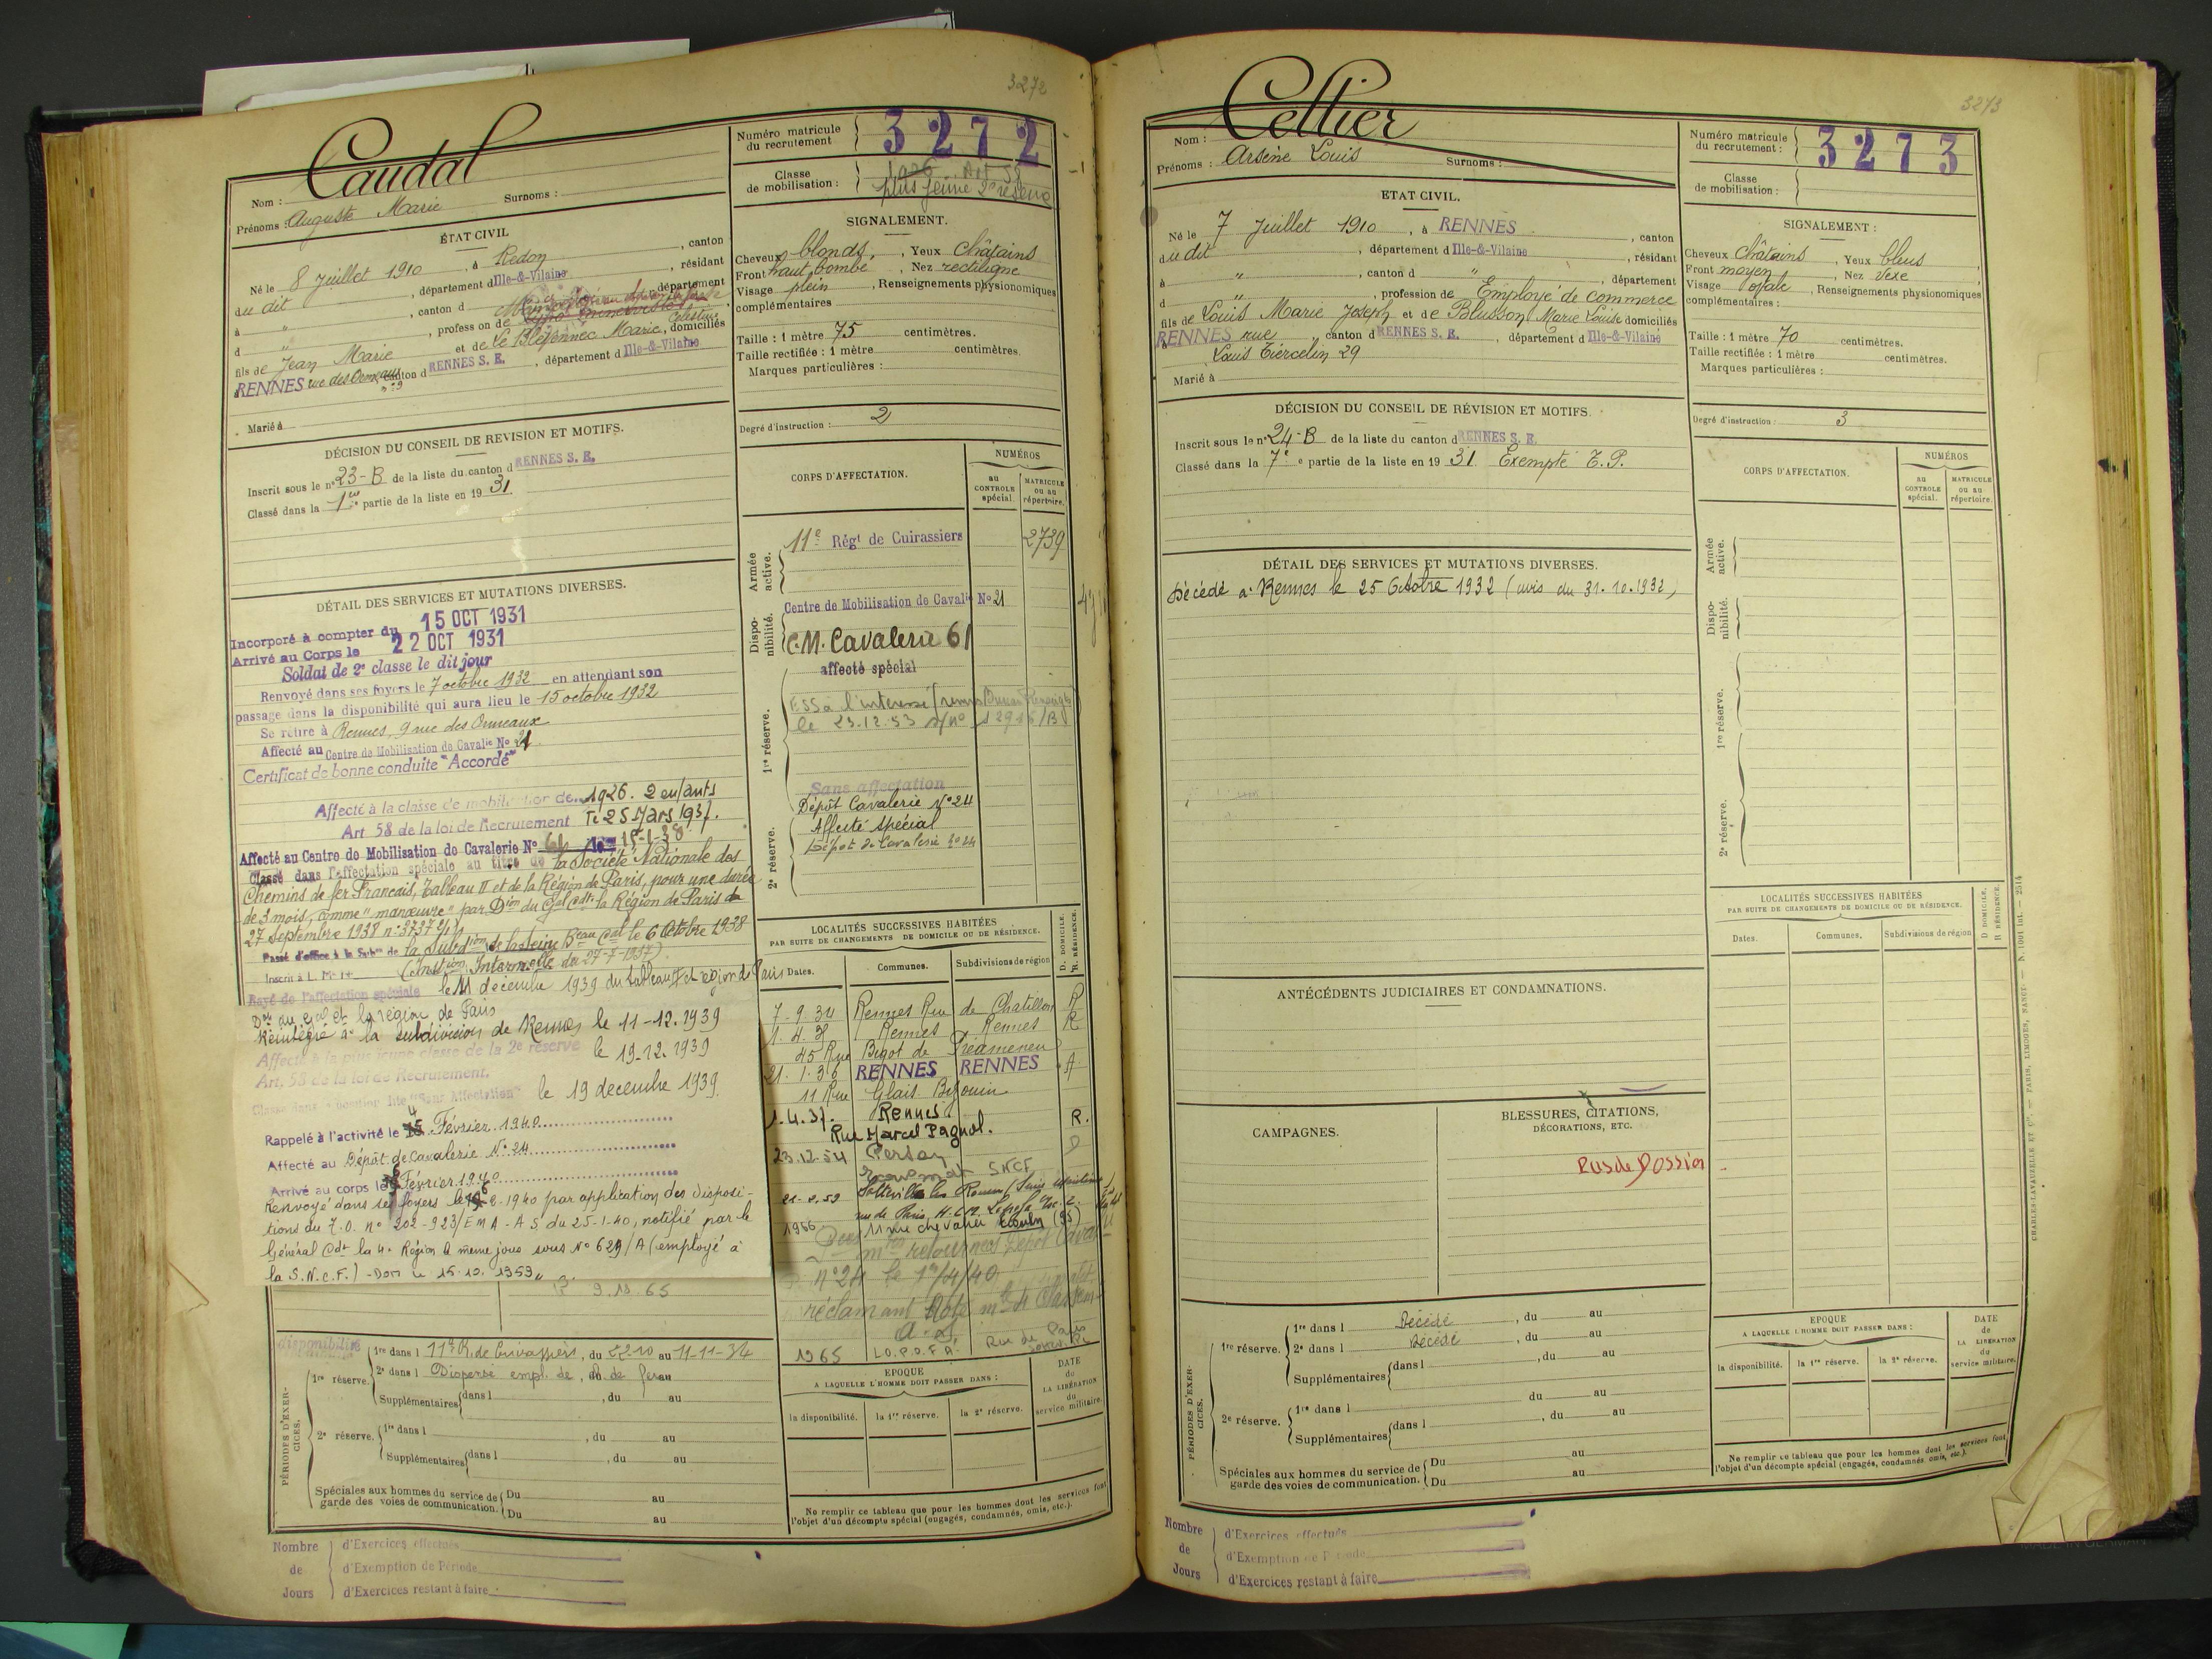 3272
Caudal
Nom :
Prénoms : Auguste Marie Surnoms :
Numéro matricule du recrutement 3272
Classe de mobilisation : 1926 Art 58
plus jeune 2e réserve
ÉTAT CIVIL
Né le 8 Juillet 1910, à Redon, canton
du dit, département d Ille-&-Vilaine, résidant
à " , canton d , département
d " , profession de
fils de Jean Marie et de Le Bléfennec Marie Célestine, domiciliés
à RENNES rue des Ormeaux n°9 canton d RENNES S. E., département d Ille-&-Vilaine
Marié à
SIGNALEMENT.
Cheveux blonds, Yeux châtains
Front haut, bombé, Nez rectiligne
Visage plein, Renseignements physionomiques
complémentaires
Taille : 1 mètre 75 centimètres.
Taille rectifiée : 1 mètre centimètres.
Marques particulières :
Degré d'instruction : 2
DÉCISION DU CONSEIL DE REVISION ET MOTIFS.
Inscrit sous le n° 23-B de la liste du canton d RENNES S. E.
Classé dans la 1re partie de la liste en 19 31.
DÉTAIL DES SERVICES ET MUTATIONS DIVERSES.
Incorporé à compter du 15 OCT 1931
Arrivé au Corps le 22 OCT 1931
Soldat de 2e classe le dit jour
Renvoyé dans ses foyers le 7 octobre 1932 en attendant son
passage dans la disponibilité qui aura lieu le 15 octobre 1932
Se retire à Rennes, 9 rue des Ormeaux
Affecté au Centre de Mobilisation de Cavalie No 21
Certificat de bonne conduite "Accordé"
Affecté à la classe de mobilisation de 1926. 2 enfants
Art. 58 de la loi de Recrutement Le 25 Mars 1937.
Affecté au Centre de Mobilisation de Cavalerie No 61 le 15-1-38
Classé dans l'affectation spéciale au titre de la Société Nationale des
Chemins de fer Français, Tableau II et de la Région de Paris, pour une durée
de 3 mois, comme "manœuvre" par Dion du Gal Cdt. la Région de Paris du
27 Septembre 1938 n°
Passé d'office à la Subon de la Subdion de la Seine Beau Cal le 6 Octobre 1938
(Instion Intermelle du 27-7-1937).
Rayé de l'affectation spéciale le 11 décembre 1939 du tableau et région de Paris
Don au Gal Ct la région de Paris
Réintégré à la subdivision de Rennes le 11-12.1939
Affecté à la plus jeune classe de la 2e réserve le 19-12.1939
Art. 58 de la loi de Recrutement.
Classé dans la position dite "Sans Affectation" le 19 décembre 1939
Rappelé à l'activité le 4 Février 1940
Affecté au Dépôt de Cavalerie N° 24
Arrivé au corps le Février 1940
Renvoyé dans ses foyers le 2-1940 par application des disposi-
tions du T.O. n° 202-923/E M A - A S du 25-1-40, notifié par le
Général Cdt la 4e Région le même jour sous N° 629/A (employé à
la S.N.C.F.) - Dom le 15.10.1959
9.10.65
CORPS D'AFFECTATION.
NUMÉROS
au CONTROLE spécial.
MATRICULE ou au répertoire.
Armée active.
11e Régt de Cuirassiers 2739
Disponibilité.
Centre de Mobilisation de Cavalie No 21
C.M. Cavalerie 61
affecté spécial
1re réserve.
le 23.12.53
Sans affectation
Dépôt Cavalerie N° 24
2e réserve.
Affecté spécial
Dépôt de Cavalerie n° 24
LOCALITÉS SUCCESSIVES HABITÉES
PAR SUITE DE CHANGEMENTS DE DOMICILE OU DE RÉSIDENCE.
D. DOMICILE.
R. RÉSIDENCE.
Dates. Communes. Subdivisions de région
7-9.34 Rennes Rue de Chatillon R
1.4.35 Rennes Rennes R
45 Rue Bigot de Préameneu
21.1.36 RENNES RENNES
11 Rue Glais Bizouin
1.4.37. Rennes
Rue Marcel Pagnol. R.
23.12.54 Persan D
SNCF
1966 11 rue chevalier
retourner Dépôt Caval
n°24 le 1er/4/40
réclamant
1965
disponibilité
PÉRIODES D'EXERCICES.
1re réserve. 1re dans l 11e R. de Cuirassiers, du 22-10 au 11-11-34
2e dans l Dispensé empl. de , Ch. de fer au
Supplémentaires dans l , du au
2e réserve. 1re dans l , du au
Supplémentaires dans l , du au
Spéciales aux hommes du service de garde des voies de communication. Du au
Du au
EPOQUE
A LAQUELLE L'HOMME DOIT PASSER DANS :
la disponibilité. la 1re réserve. la 2e réserve.
DATE de LA LIBÉRATION du service militaire.
Ne remplir ce tableau que pour les hommes dont les services font
l'objet d'un décompte spécial (engagés, condamnés, omis, etc.).
Nombre de Jours
d'Exercices effectués
d'Exemption de Période
d'Exercices restant à faire
3273
Cellier
Nom :
Prénoms : Arsène Louis Surnoms :
Numéro matricule du recrutement : 3273
Classe de mobilisation :
ETAT CIVIL.
Né le 7 Juillet 1910, à RENNES, canton
du dit, département d Ille-&-Vilaine, résidant
à " , canton d " , département
d " , profession de Employé de commerce
fils de Louis Marie Joseph et de Blusson Marie Louise domiciliés
à RENNES rue canton d RENNES S. E., département d Ille-&-Vilaine
Louis Tiercelin 29
Marié à
SIGNALEMENT :
Cheveux châtains, Yeux bleus
Front moyen, Nez vexe
Visage ovale, Renseignements physionomiques
complémentaires :
Taille : 1 mètre 70 centimètres.
Taille rectifiée : 1 mètre centimètres.
Marques particulières :
Degré d'instruction : 3
DÉCISION DU CONSEIL DE RÉVISION ET MOTIFS.
Inscrit sous le n° 24-B de la liste du canton d RENNES S. E.
Classé dans la 7e partie de la liste en 19 31 Exempté T.P.
DÉTAIL DES SERVICES ET MUTATIONS DIVERSES.
Décédé à Rennes le 25 Octobre 1932 (avis du 31.10.1932)
CORPS D'AFFECTATION.
NUMÉROS
au CONTROLE spécial.
MATRICULE ou au répertoire.
Armée active.
Disponibilité.
1re réserve.
2e réserve.
ANTÉCÉDENTS JUDICIAIRES ET CONDAMNATIONS.
CAMPAGNES.
BLESSURES, CITATIONS,
DÉCORATIONS, ETC.
Pas de Dossier
LOCALITÉS SUCCESSIVES HABITÉES
PAR SUITE DE CHANGEMENTS DE DOMICILE OU DE RÉSIDENCE.
D DOMICILE.
R RÉSIDENCE.
Dates. Communes. Subdivisions de région
PÉRIODES D'EXERCICES.
1re réserve. 1re dans l Décédé , du au
2e dans l Décédé , du au
Supplémentaires dans l , du au
du au
2e réserve. 1re dans l , du au
Supplémentaires dans l
Spéciales aux hommes du service de garde des voies de communication. Du au
Du au
EPOQUE
A LAQUELLE L'HOMME DOIT PASSER DANS :
la disponibilité. la 1re réserve. la 2e réserve.
DATE de LA LIBÉRATION du service militaire.
Ne remplir ce tableau que pour les hommes dont les services font
l'objet d'un décompte spécial (engagés, condamnés omis, etc.).
CHARLES-LAVAUZELLE ET Cie. — PARIS, LIMOGES, NANCY
Nombre de Jours
d'Exercices effectués
d'Exemption de Période
d'Exercices restant à faire